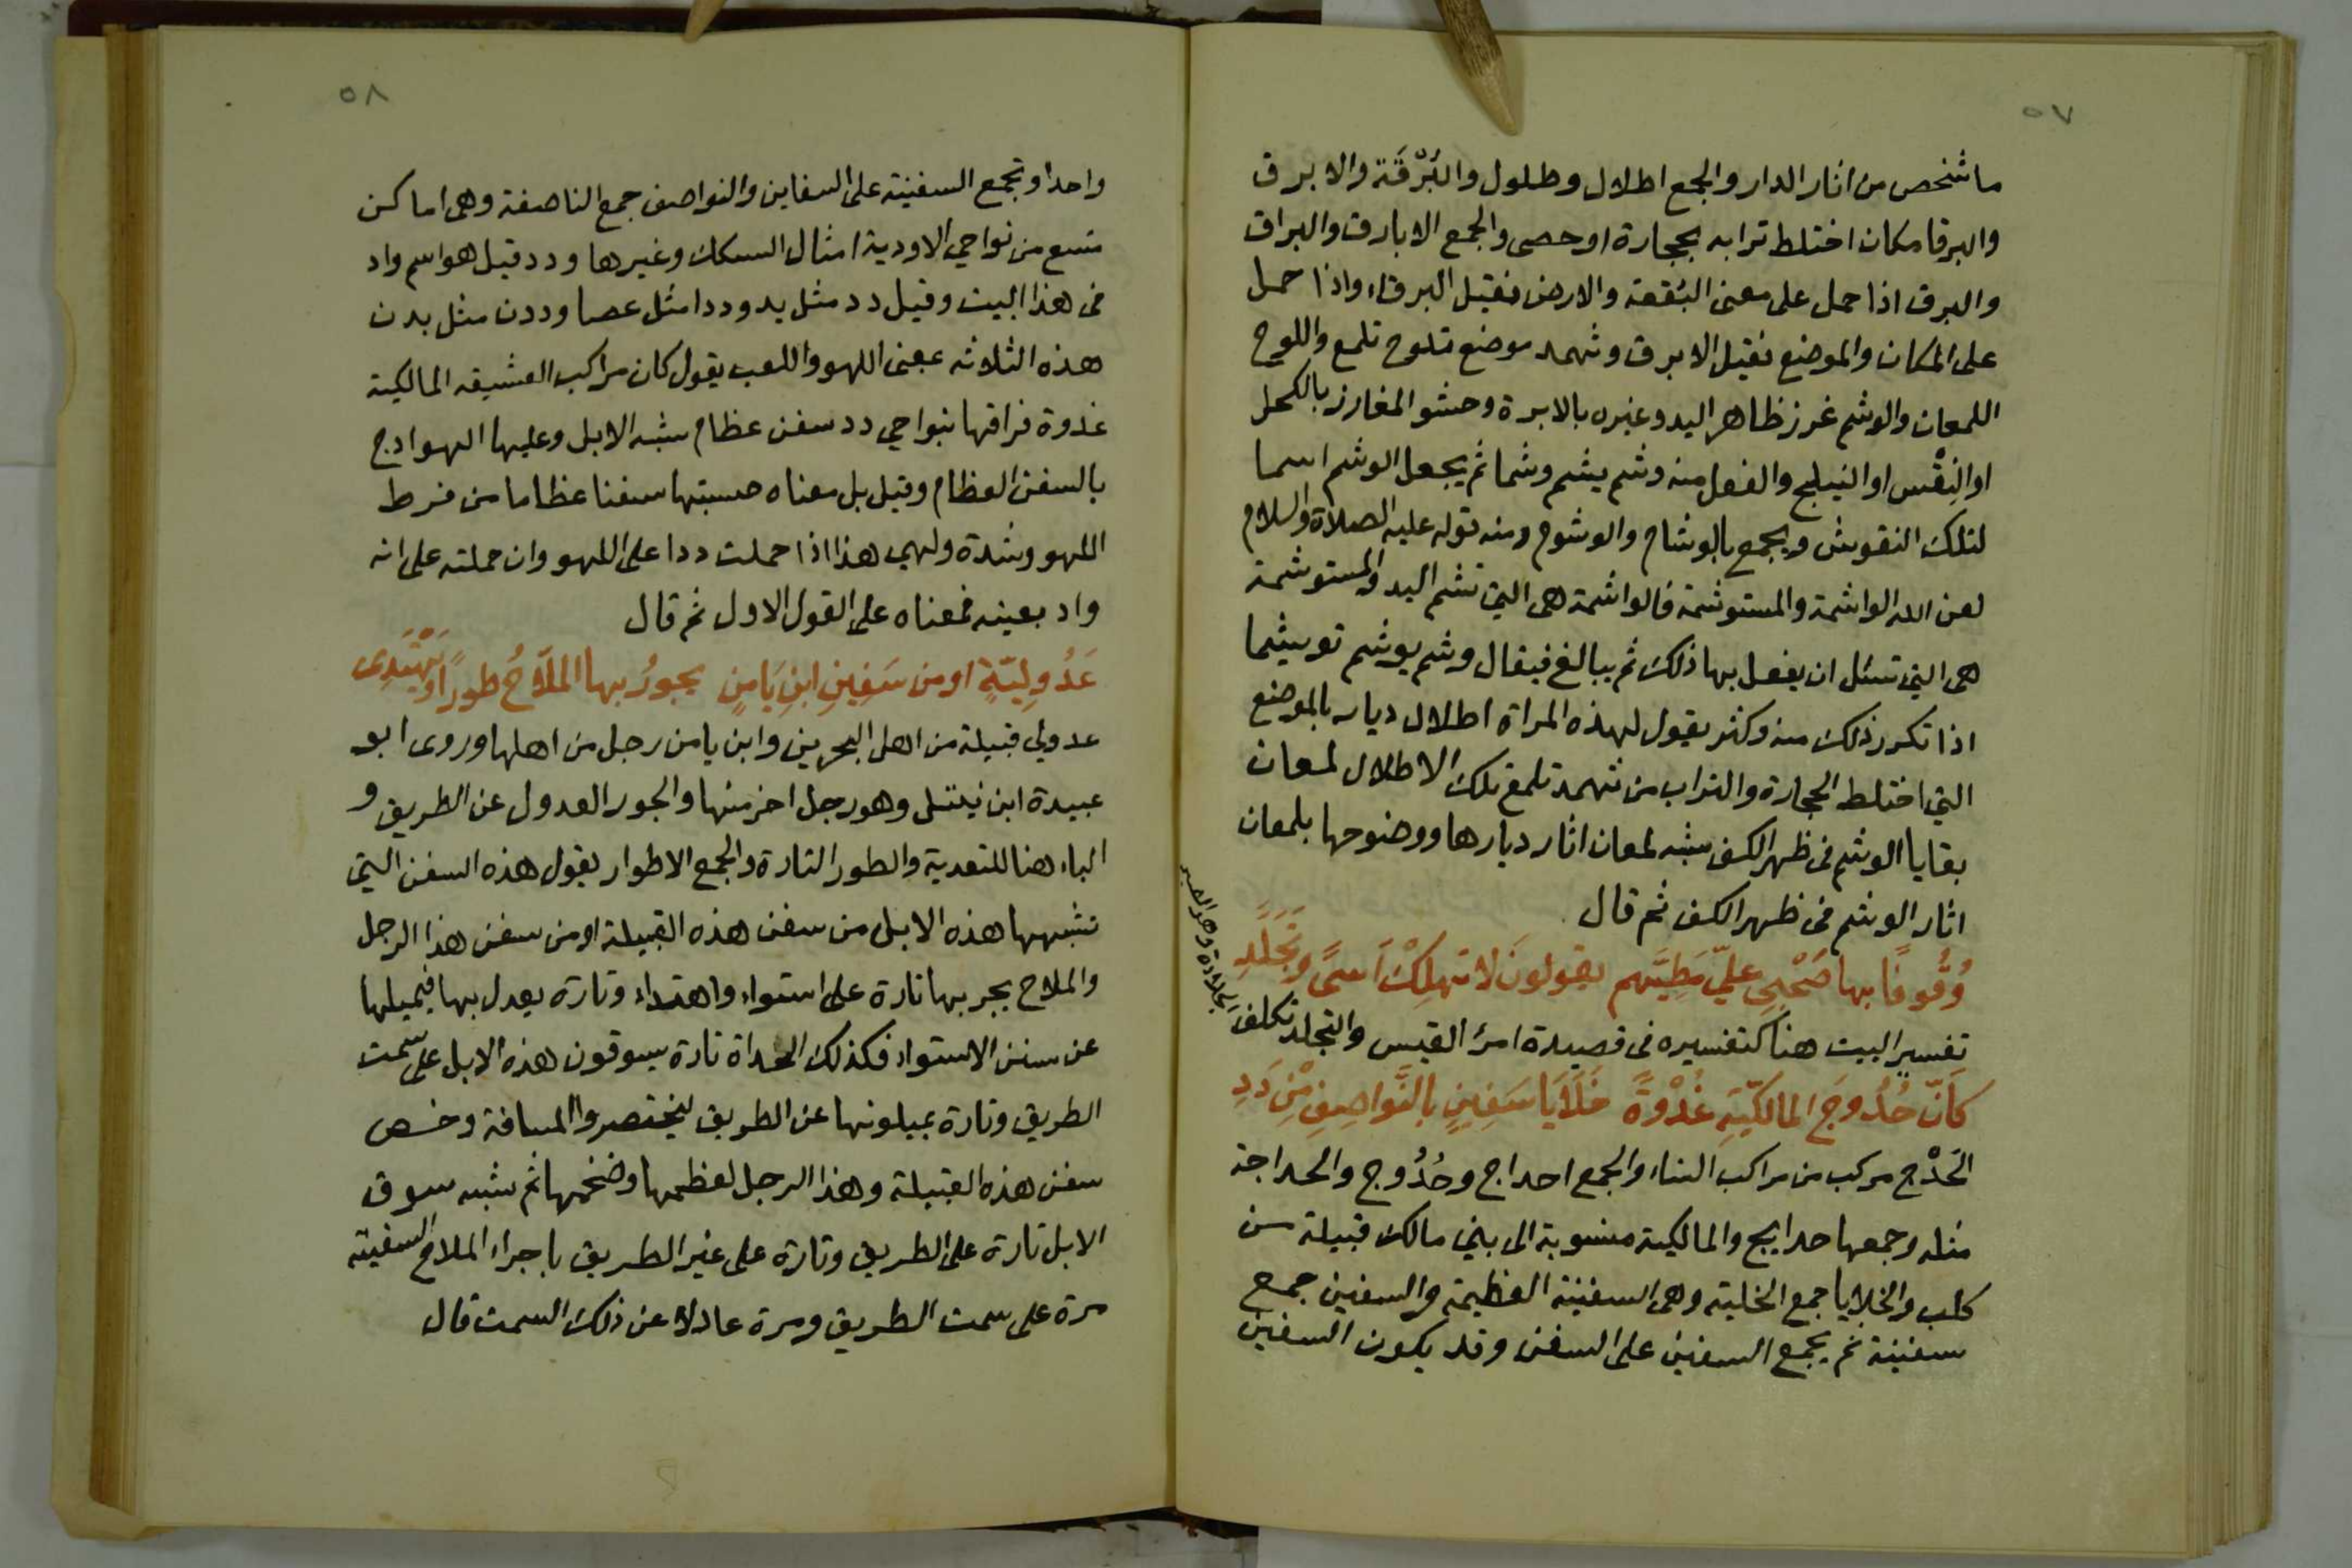 ٥٧
ما شخص من اثار الدار والجمع اطلال وطلول والبُرْقَة والابرق
والبرقا مكان اختلط ترابه بحجارة او حصى والجمع الابارق والبراق
والبرق اذا حمل على معنى البُقعة والارض فقيل البرقاء واذا حمل
على المكان والموضع فقيل الابرق وثهمد موضع تلوح تلمع واللوح
اللمعان والوشم غرز ظاهر اليد وغيره بالابرة وحشو المغارز بالكحل
او النِقْس او النيلج والفعل منه وشم يشم وشما ثم يجعل الوشم اسما
لتلك النقوش ويجمع بالوشام والوشوم ومنه قوله عليه الصلاة والسلام
لعن الله الواشمة والمستوشمة فالواشمة هى التي تشم اليد والمستوشمة
هى التي تسئل ان يفعل بها ذلك ثم يبالغ فيقال وشم يوشم توشيما
اذا تكرر ذلك منه وكثر يقول لهذه المراة اطلال ديار بالموضع
التي اختلط الحجارة والتراب من ثهمد تلمع تلك الاطلال لمعان
بقايا الوشم فى ظهر الكف شبه لمعان اثار ديارها ووضوحها بلمعان
اثار الوشم فى ظهر الكف ثم قال
وُقُوفًا بها صَحْبِى عليّ مَطِيَّهم يقولونَ لا تهلِكْ اَسىً وتَجَلَّدِ
تفسير البيت هنا كتفسيره فى قصيدة امرئ القيس والتجلد تكلف
الجلادة وهو الصبر
كَاَنَّ حُدُوجَ المالكيّةِ غُدْوةً خَلَايَا سَفِينٍ بالنَّواصِفِ مِن دَدِ
الحَدْج مركب من مراكب النساء والجمع احداج وحُدُوج والحداجة
مثله وجمعها حدايج والمالكية منسوبة الى بني مالك قبيلة من
كلب والخلايا جمع الخلية وهى السفينة العظيمة والسفين جمع
سفينة ثم يجمع السفين على السفن وقد يكون السفين
٥٨
واحدا وتجمع السفينة على السفاين والنواصف جمع الناصفة وهى اماكن
تتسع من نواحي الاودية امثال السكك وغيرها ودد قيل هو اسم واد
فى هذا البيت وقيل دد مثل يد وددا مثل عصا وددن مثل بدن
هذه الثلاثه بمعنى اللهو واللعب يقول كان مراكب العشيقه المالكية
غدوة فراقها بنواحي دد سفن عظام شبه الابل وعليها الهوادج
بالسفن العظام وقيل بل معناه حسبتها سفنا عظاما من فرط
اللهو وشدة ولهي هذا اذا حملت ددا على اللهو وان حملته على انه
واد بعينه فمعناه على القول الاول ثم قال
عَدُولِيّةٍ او من سَفِينِ ابنِ يَامِنٍ يجورُ بها الملَّاحُ طورًا ويَهْتَدِى
عدولي قبيلة من اهل البحرين وابن يامن رجل من اهلها وروى ابو
عبيدة ابن نيتل وهو رجل اخر منها والجور العدول عن الطريق و
الباء هنا للتعدية والطور التارة والجمع الاطوار يقول هذه السفن التي
تشبهها هذه الابل من سفن هذه القبيلة او من سفن هذا الرجل
والملاح يجر بها تارة على استواء واهتداء وتارة يعدل بها فيميلها
عن سنن الاستواء فكذلك الحداة تارة يسوقون هذه الابل على سمت
الطريق وتارة يميلونها عن الطريق ليختصروا المسافة وخص
سفن هذه القبيلة وهذا الرجل لعظمها وضخمها ثم شبه سوق
الابل تارة على الطريق وتارة على غير الطريق باجراء الملاح السفينة
مرة على سمت الطريق ومرة عادلا عن ذلك السمت قال